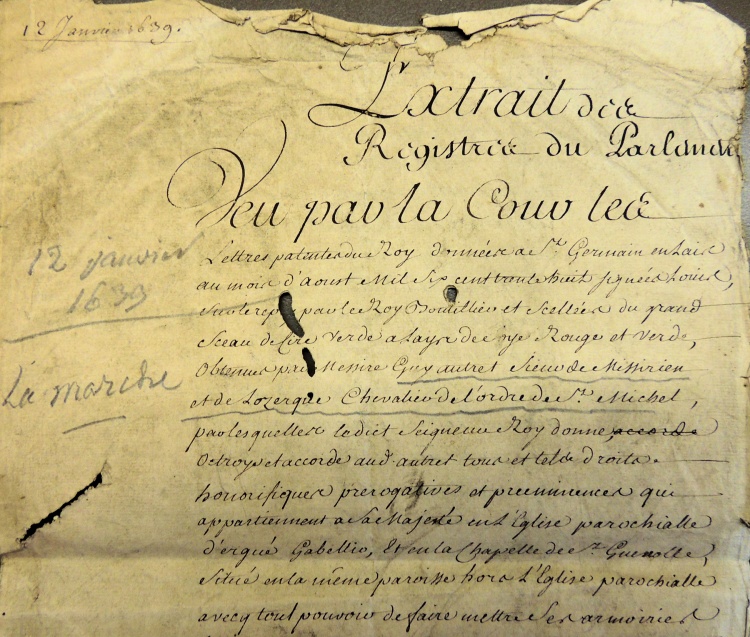 12 Janvier 1639.
Extrait des
Registres du Parlement
Veu par la Cour les
12 janvier
1639
Lettres patentes du Roy données a St. Germain en Laie
au mois d'aoust Mil Six cent trante huit signées Louis,
Sur le reply par le Roy Boutillier et Scellées du grand
Sceau de Cire Verde a Lays de soye Rouge et Verde,
Obtenues par Messire Guy autret Sieur de Missirien
La marche
et de Lezergué Chevalier de l'ordre de St. Michel,
par lesquelles ledict Seigneur Roy donne, accorde
Octroye et accorde aud autret tous et tels droits
honorifiques prerogatives et preeminences qui
appartiennent a Sa Majesté en L'Eglise parochialle
d'ergué Gabellic, Et en la Chapelle de St. Guenolle,
Situé en la même paroisse hors L'Eglise parochialle
avecq tout pouvoir de faire mettre Ses armoiries